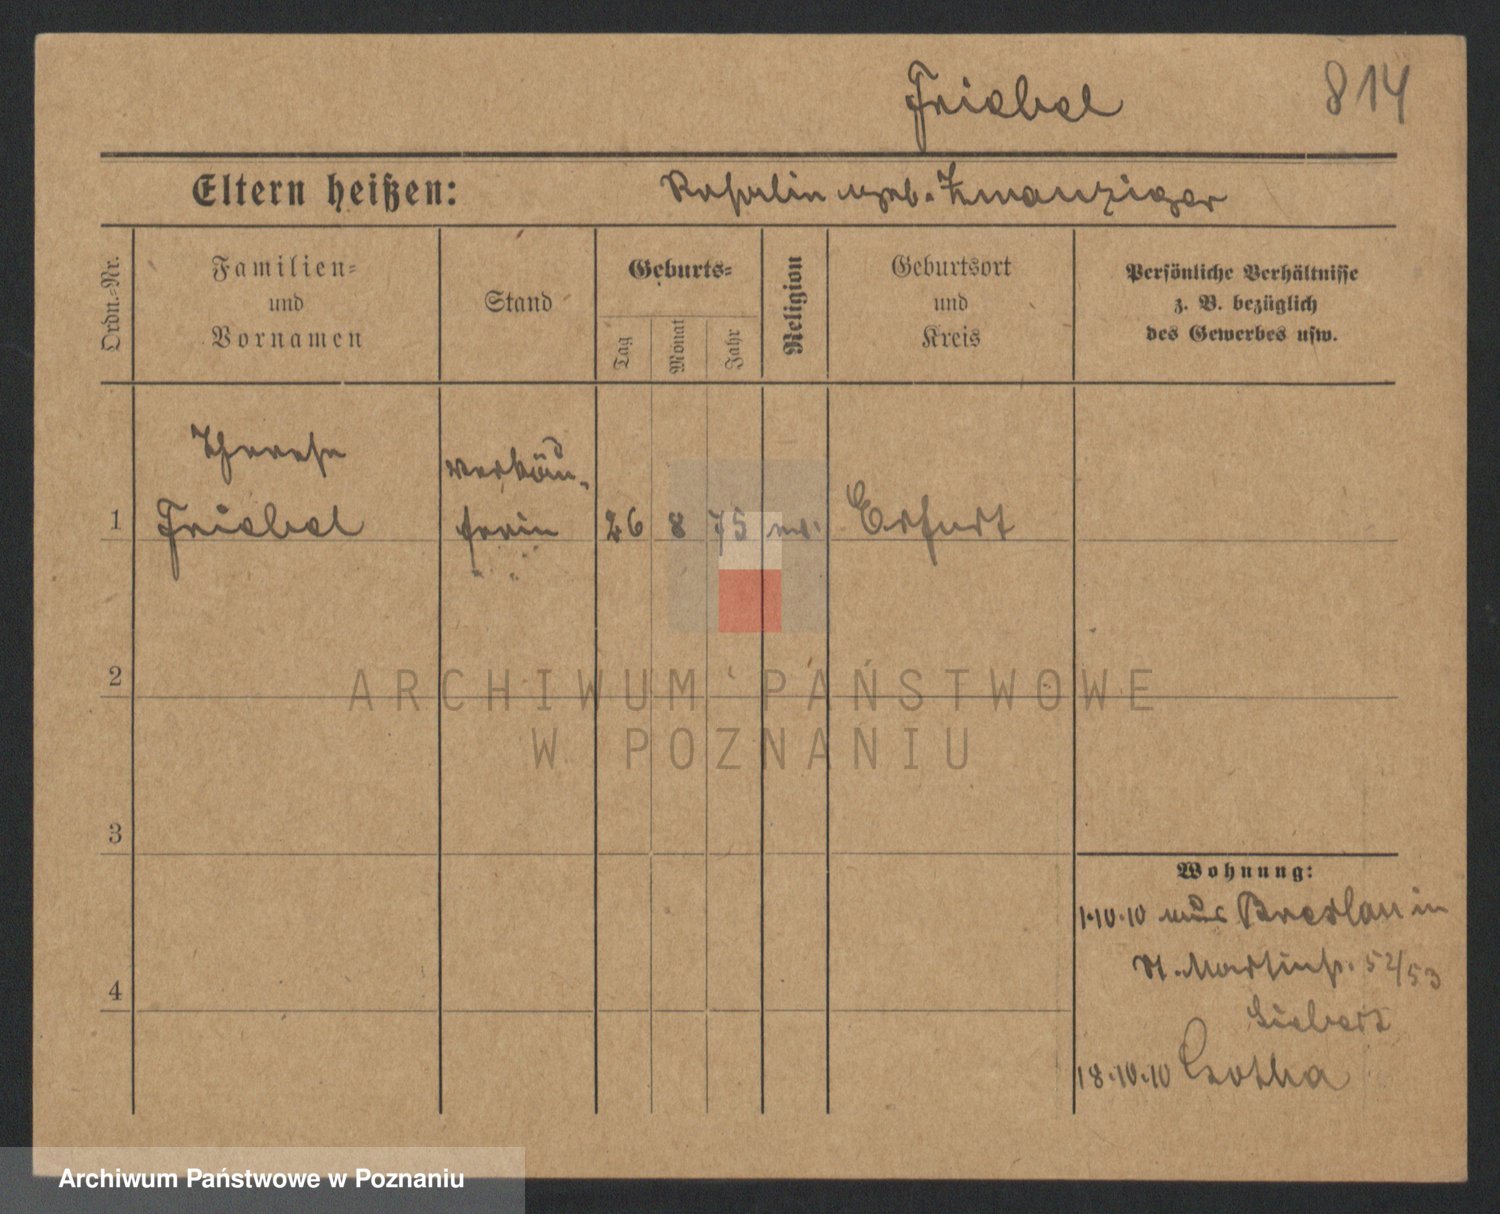 Friebel 814
Eltern heißen: Rosalin geb. Zwanziger
Ordn.=Nr.
Familien=
und
Vornamen
Stand
Geburts=
Tag
Monat
Jahr
Religion
Geburtsort
und
Kreis
Persönliche Verhältnisse
z. B. bezüglich
des Gewerbes usw.
Therese
Friebel
Verkäu-
ferin
1 26 8 75 ev. Erfurt
2
3
4
Wohnung:
1.10.10 aus Breslau in
St. Martinstr. 52/53
Siebert
18.10.10 Gotha
ARCHIWUM PAŃSTWOWE
W POZNANIU
Archiwum Państwowe w Poznaniu